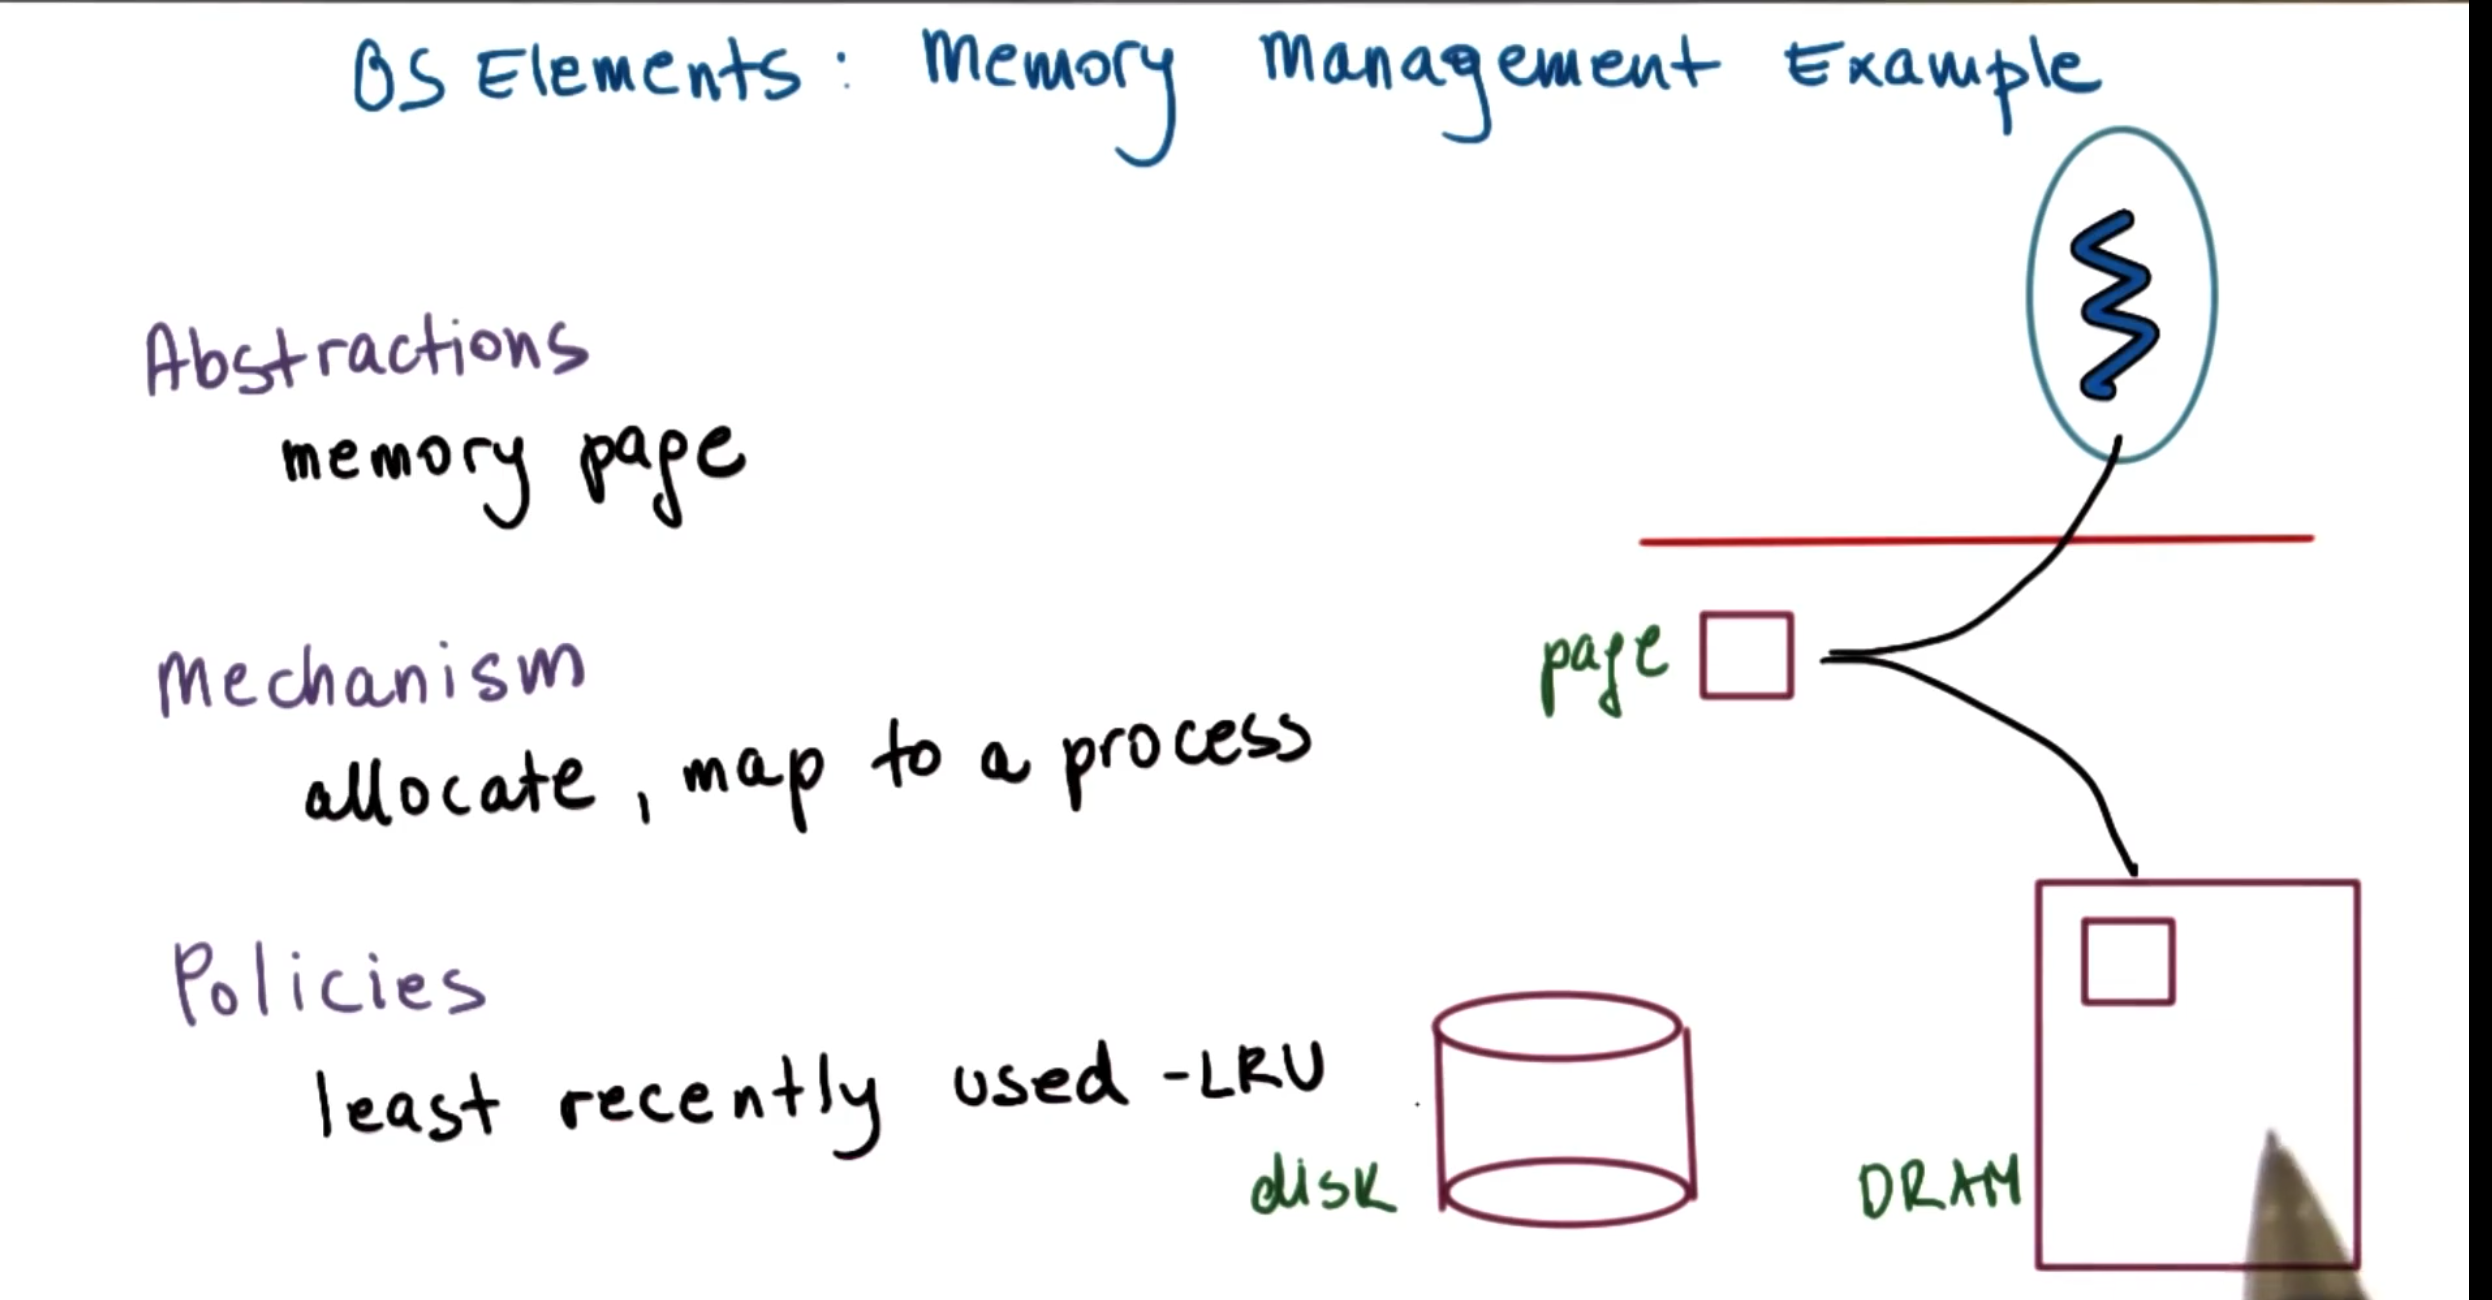 OS Elements: Memory Management Example
Abstractions
memory page
Mechanism
page
allocate, map to a process
Policies
least recently used - LRU
disk
DRAM